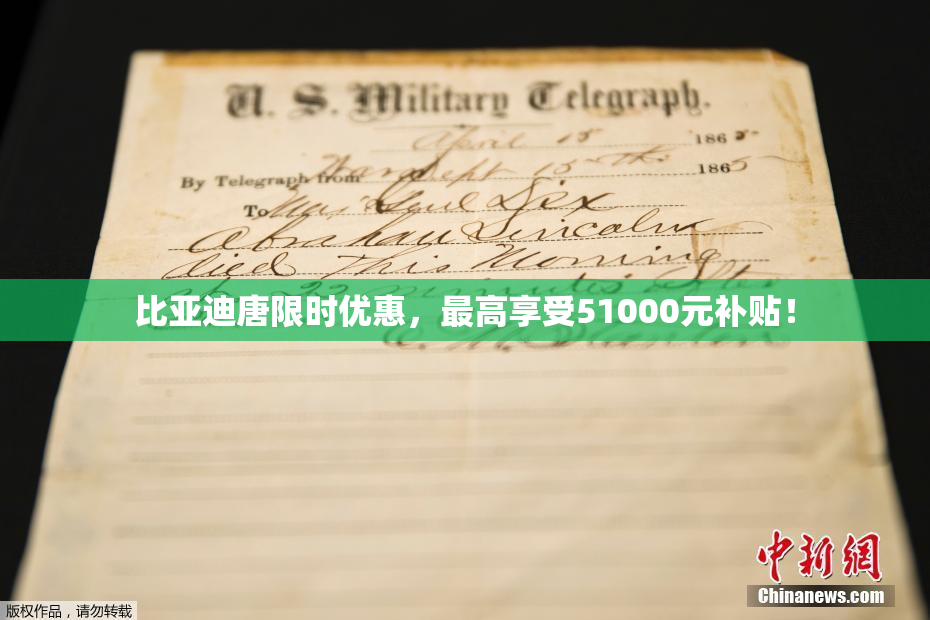 U. S. Military Telegraph.
April 15 1865.
By Telegraph from War Dept 15th 1865
To Maj Genl Dix
Abraham Lincoln
died This Morning
at 22 minutes after
比亚迪唐限时优惠，最高享受51000元补贴！
E. M. Stanton
中新网
Chinanews.com
版权作品，请勿转载